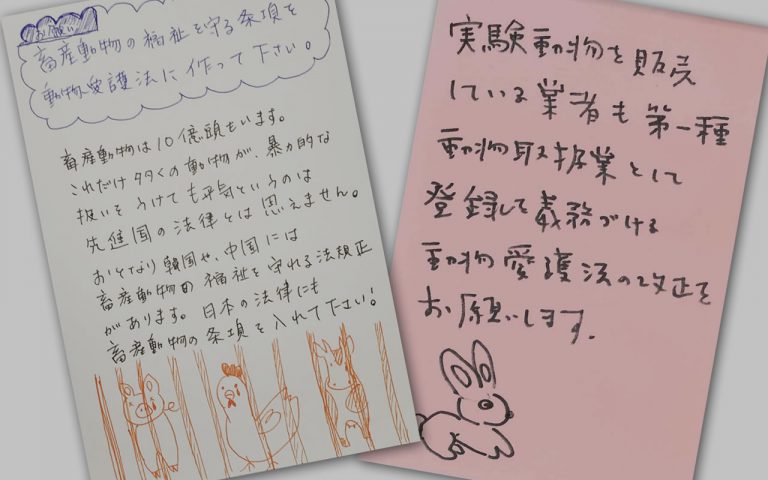 お願い
畜産動物の福祉を守る条項を
動物愛護法に作って下さい。
畜産動物は10億頭もいます。
これだけ多くの動物が、暴力的な
扱いをうけても平気というのは
先進国の法律とは思えません。
おとなり韓国や、中国には
畜産動物の福祉を守れる法規正
があります。日本の法律にも
畜産動物の条項を入れて下さい!
実験動物を販売
している業者も第一種
動物取扱業として
登録して義務づける
動物愛護法の改正を
お願いします.